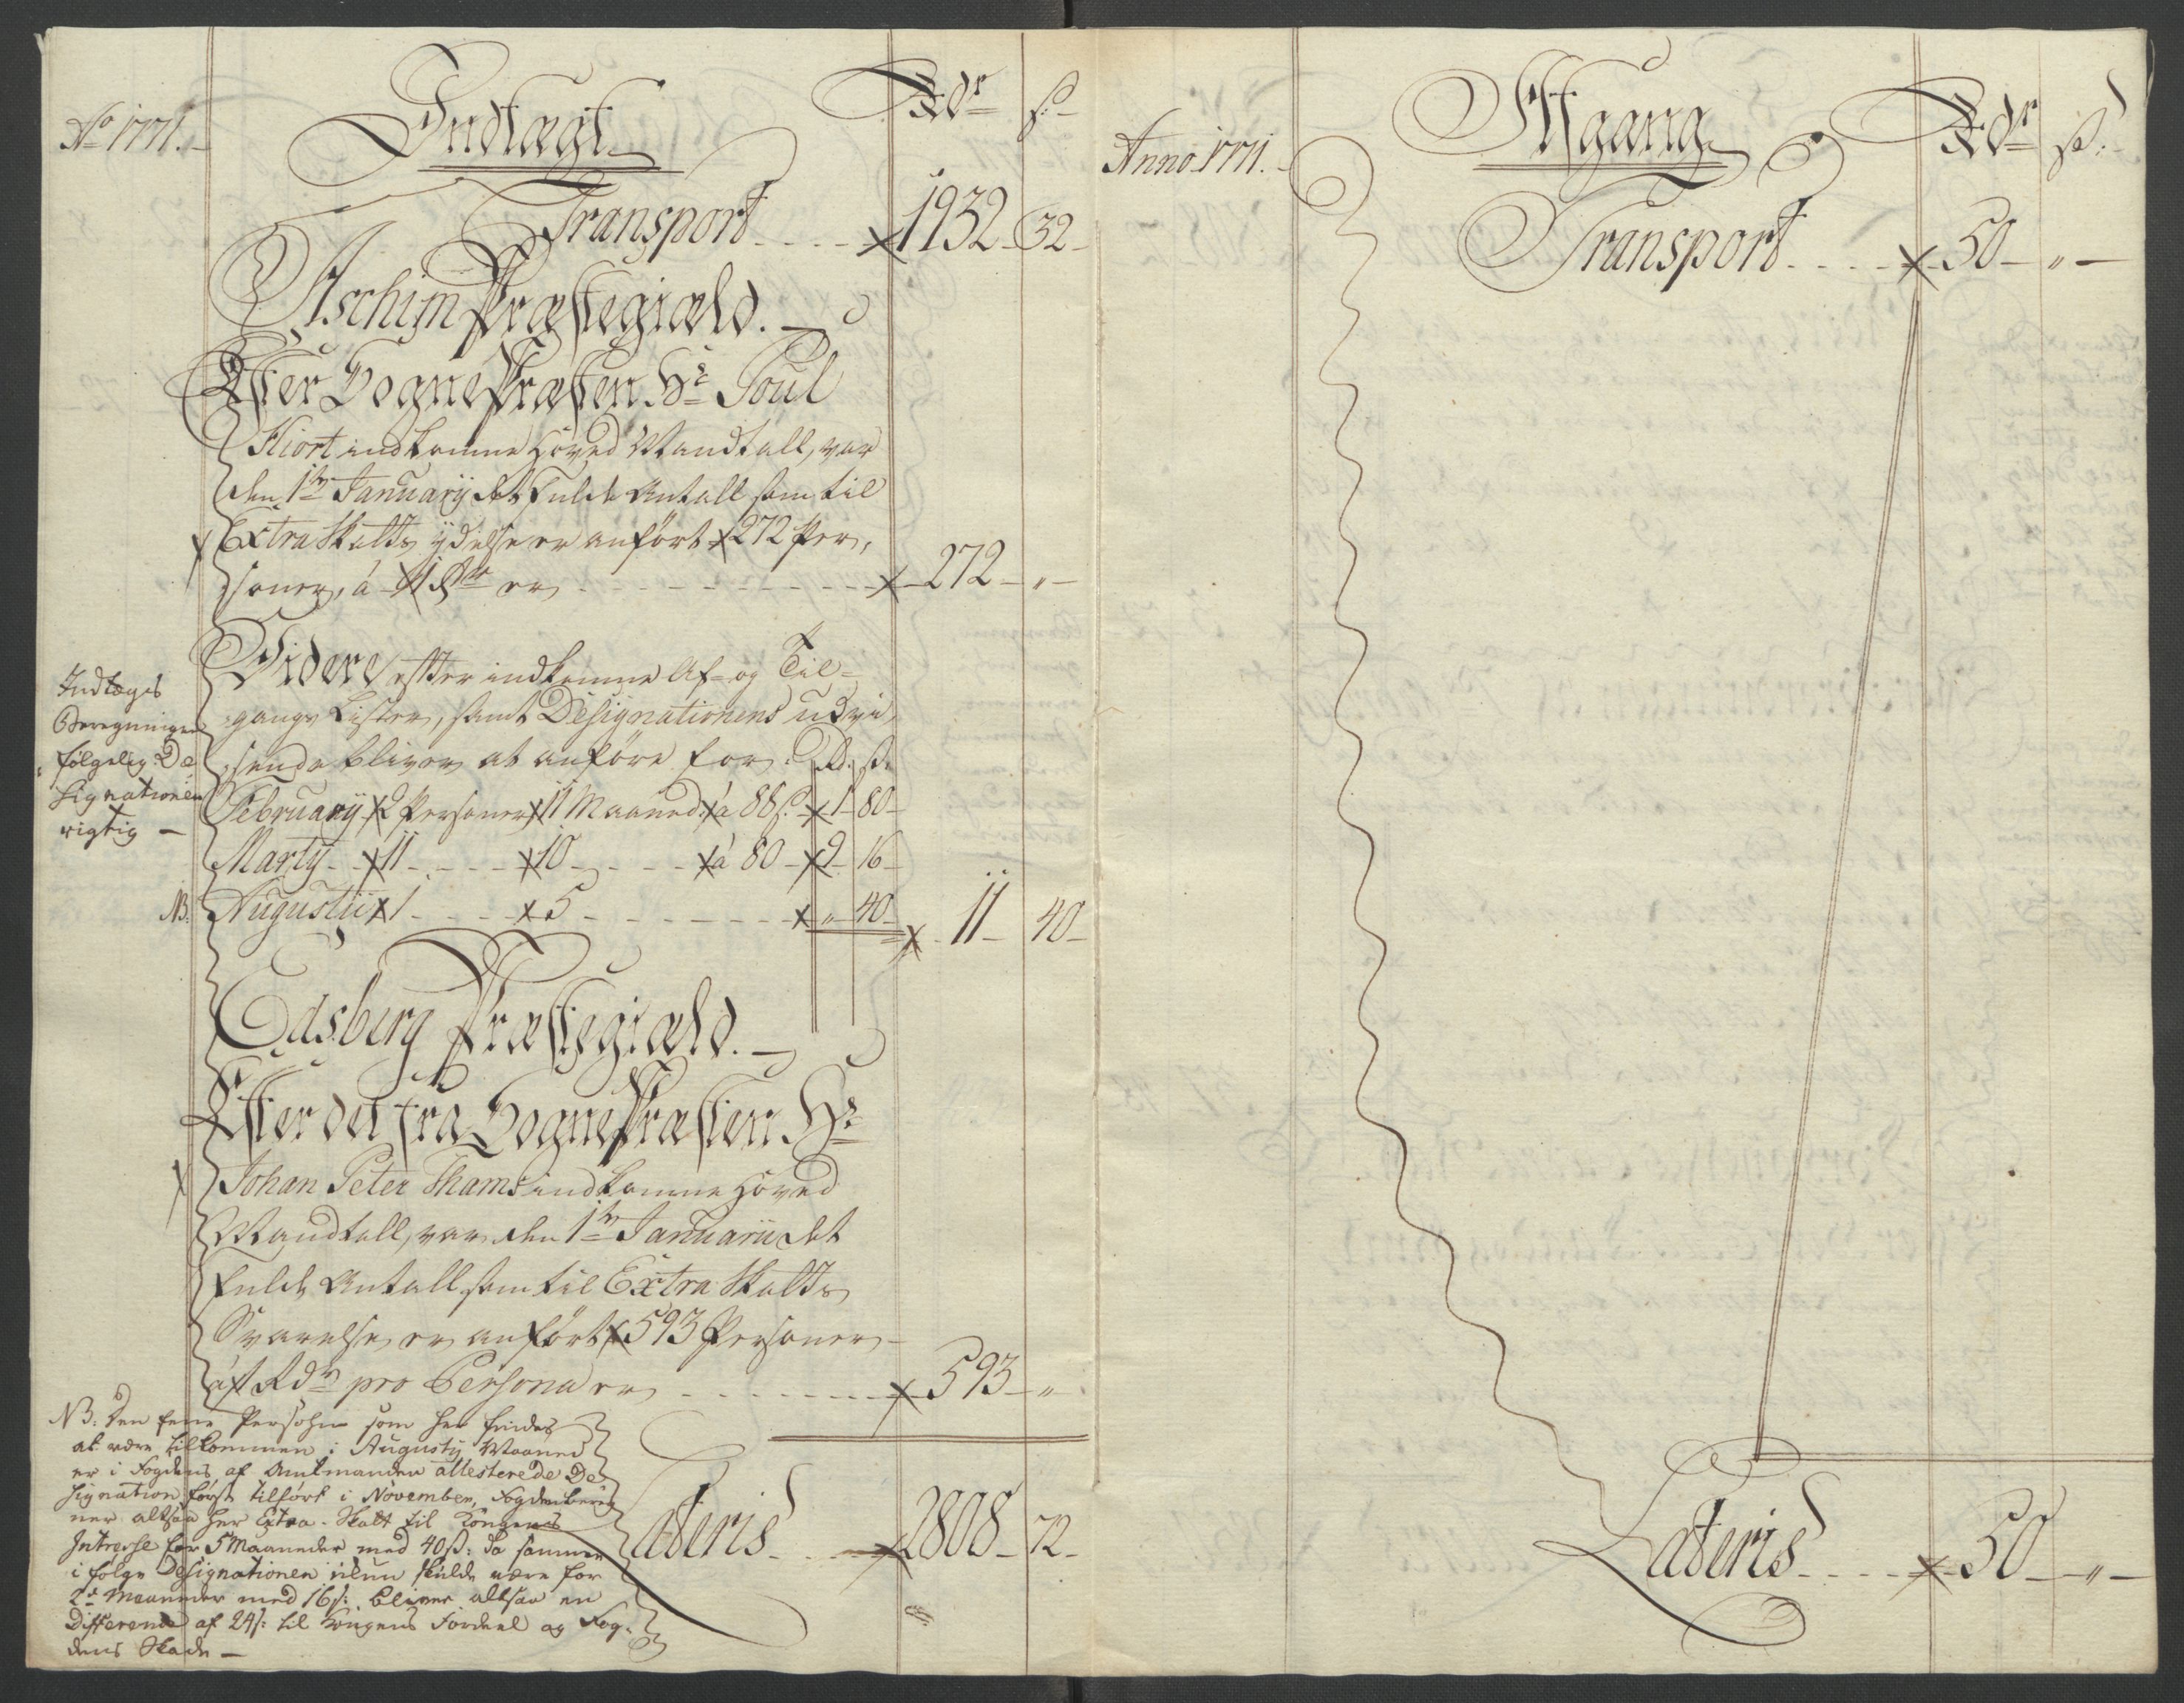 Ao 1771.
Indtægt
Rdr ß
Transport 1932 32
Aschim Præstegiæld.
Efter Sogne Præsten Hr Poul
Hiort indkomne Hoved Mandtall, var
den 1te Januarÿ det fulde Antall som til
Extra Skatts ÿdelse er anfört 272 Per,
soner, á 1 Rdr er 272 "
Videre efter indkomne Af- og Til-
gangs Lister, samt Designationens udvi,
sende bliver at anföre for Rd. ß.
Februarÿ 2 Personer 11 Maaned á 88 ß. 1 80
Martÿ 11 10 á 80 9 16
NB. Augustii 1 5 " 40 11 40
Indtægts
Beregningen
fölgelig De
signationen
rigtig
Edsberg Præstegiæld.
Efter det fra Sogne Præsten Hr
Johan Peter Thams indkomne Hoved
Mandtall, var den 1te Januarii det
fulde Antall som til Extra Skatts
Svarelse er anfört 593 Personer
á 1 Rdr pro Persona er 593 "
Lateris 2808 72
NB: den fene Persohn som her findes
at være tilkommen i Augustÿ Maaned
er i Fogdens af Amtmanden attesterede De
signation först tilfört i November, Fogden bereg
ner altsaa her Extra-Skatt til Kongens
Intresse for 5 Maaneder med 40 ß: da samme
i fölge Designationen ikun skulde være for
2de Maaneder med 16 ß: bliver altsaa en
Differende af 24 ß: til Kongens Fordeel og Fog-
dens Skade
Anno 1771.
Afgang
Rdr ß.
Transport 50 "
Lateris 50 "